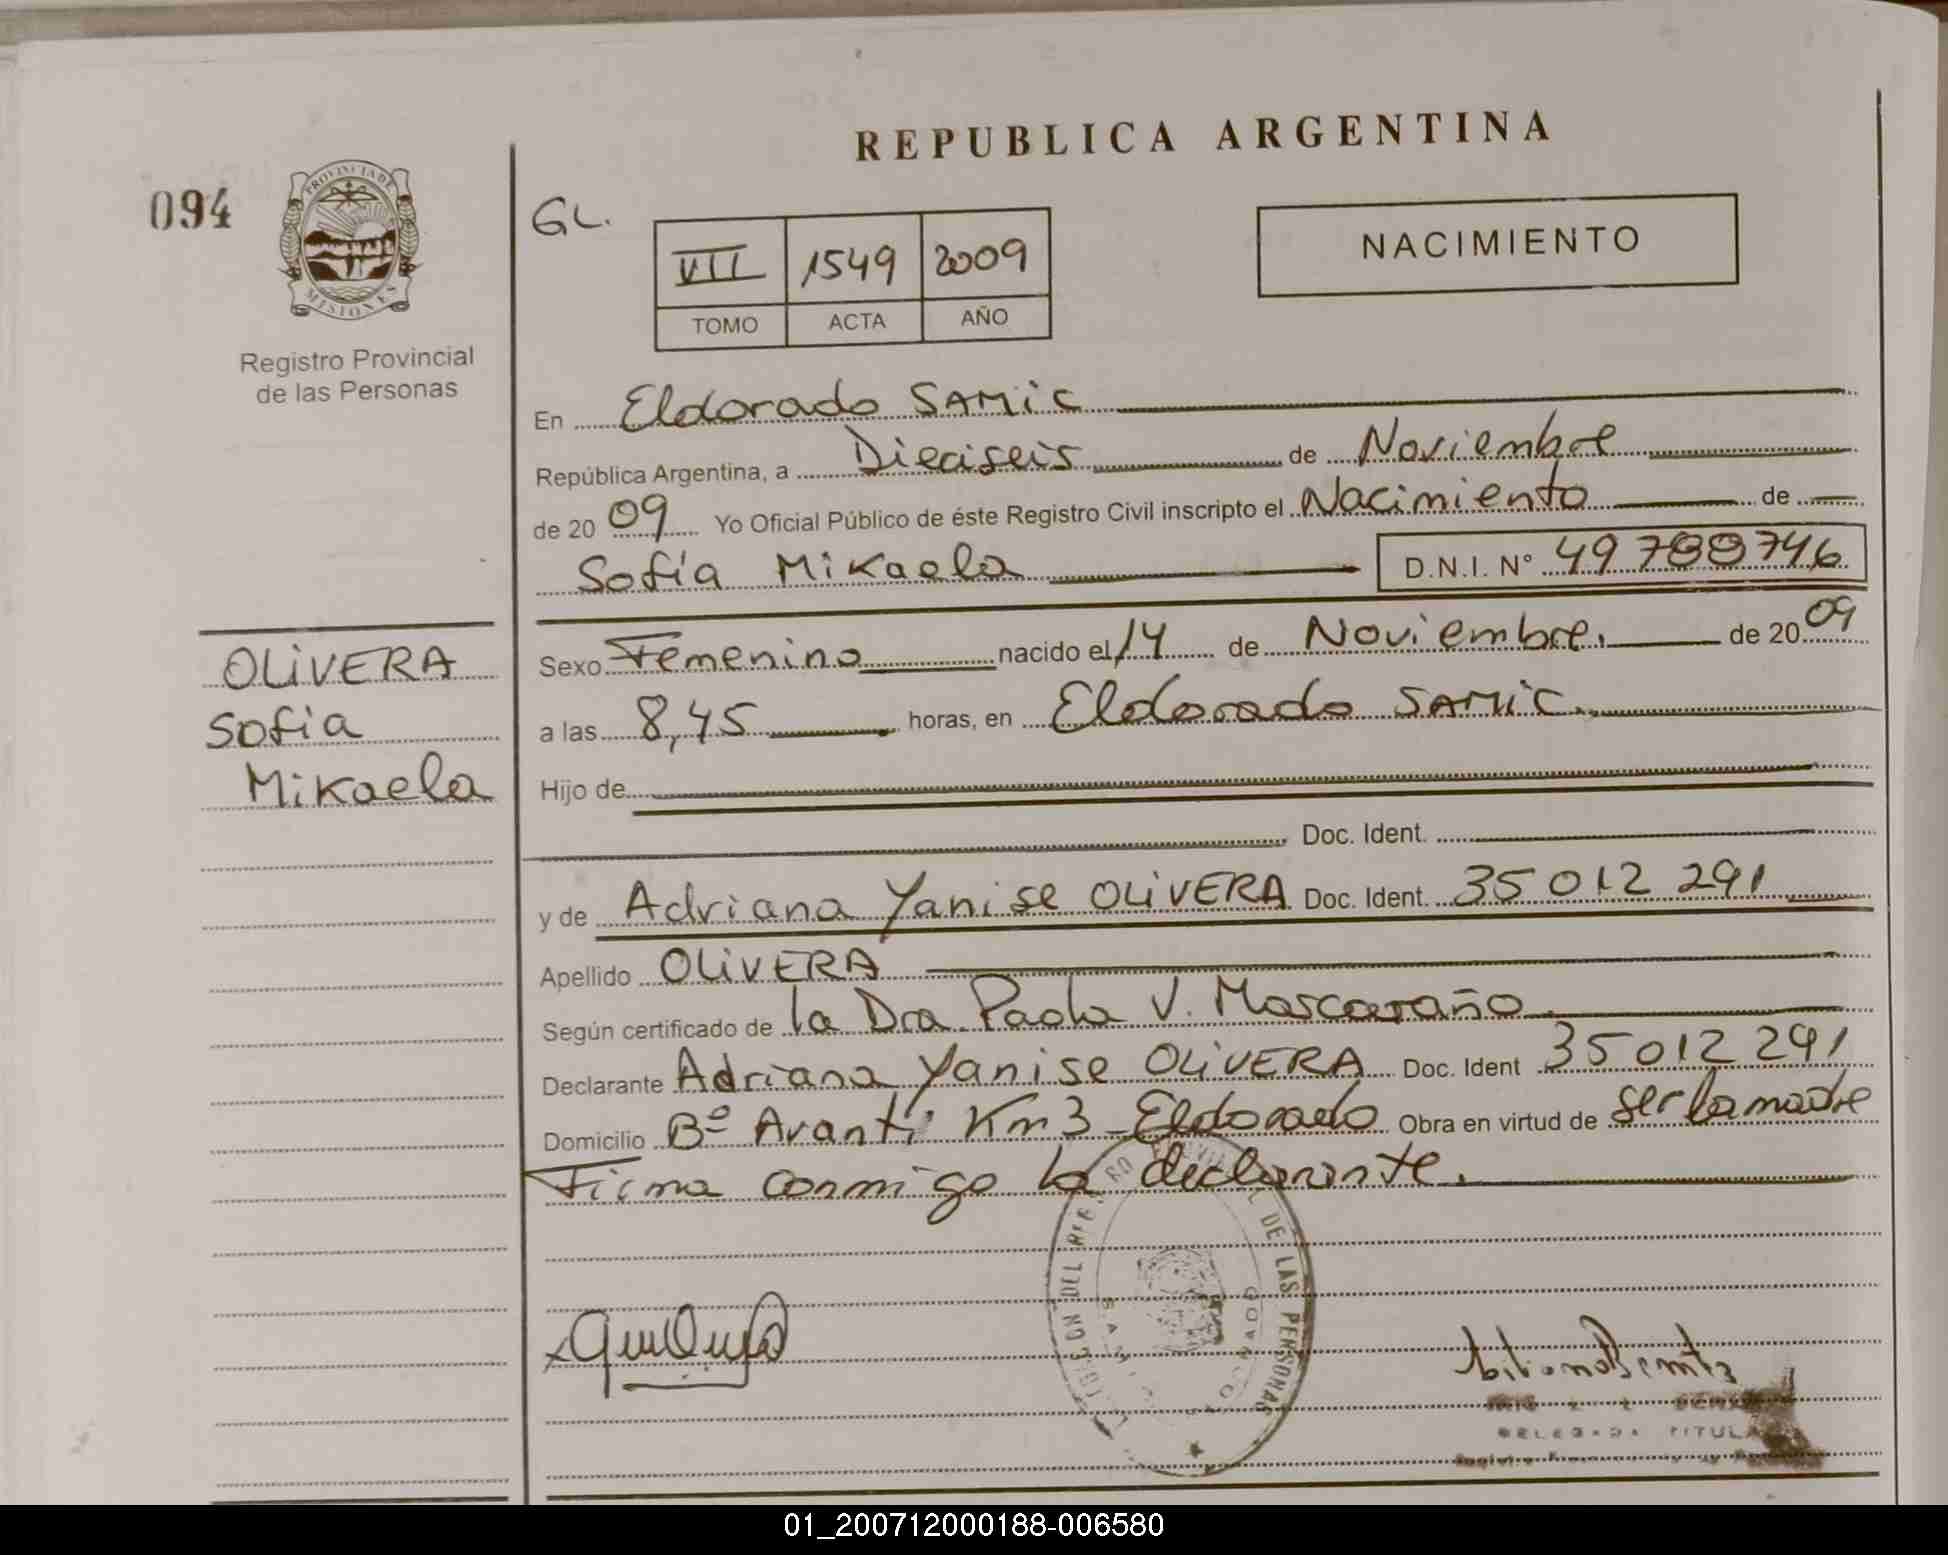 REPUBLICA ARGENTINA
094
PROVINCIA DE
MISIONES
Registro Provincial
de las Personas
GL.
VII 1549 2009
TOMO ACTA AÑO
NACIMIENTO
En Eldorado SAMiC
República Argentina, a Dieciseis de Noviembre
de 2009 Yo Oficial Público de éste Registro Civil inscripto el Nacimiento de
Sofía Mikaela D.N.I. N° 49788746
OLiVERA
Sofia
Mikaela
Sexo Femenino nacido el 14 de Noviembre. de 2009
a las 8,45 horas, en Eldorado SAMiC.
Hijo de
Doc. Ident.
y de Adriana Yanise OLiVERA Doc. Ident. 35 012 291
Apellido OLiVERA
Según certificado de la Dra Paola V. Mascaraño
Declarante Adriana Yanise OLiVERA Doc. Ident 35 012 291
Domicilio Bº Avanti Km 3 Eldorado Obra en virtud de ser la madre
Firma conmigo la declarante.
DEL DE LAS PERSONAS
SAMIC
DELEGADA TITULAR
01_200712000188-006580